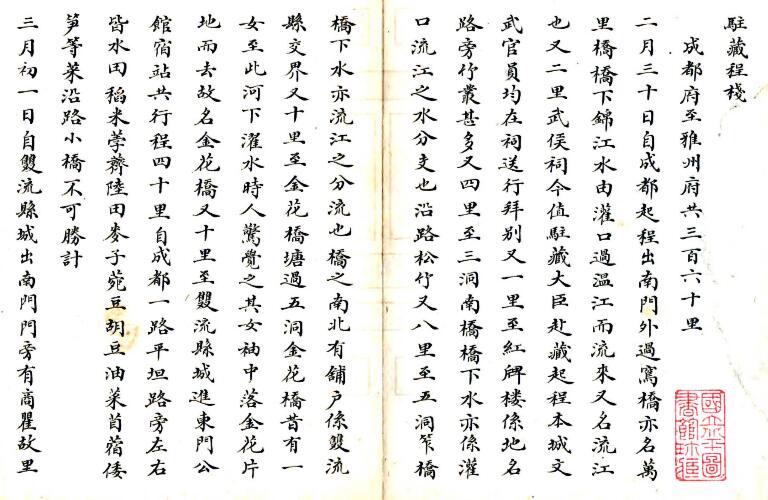 駐藏程棧
成都府至雅州府共三百六十里
二月三十日自成都起程出南門外過窩橋亦名萬
里橋橋下錦江水由灌口過溫江而流來又名流江
也又二里武侯祠今值駐藏大臣赴藏起程本城文
武官員均在祠送行拜别又一里至紅牌楼係地名
路旁竹叢甚多又四里至三洞南橋橋下水亦係灌
口流江之水分支也沿路松竹又八里至五洞窄橋
橋下水亦流江之分流也橋之南北有舖户係雙流
縣交界又十里至金花橋塘過五洞金花橋昔有一
女至此河下濯水時人驚覺之其女袖中落金花片
地而去故名金花橋又十里至雙流縣城進東門公
館宿站共行程四十里自成都一路平坦路旁左右
皆水田稻米荸薺陸田麥子菀豆胡豆油菜苜蓿倭
笋等菜沿路小橋不可勝計
三月初一日自雙流縣城出南門門旁有商瞿故里
國立北平圖
書館珍藏